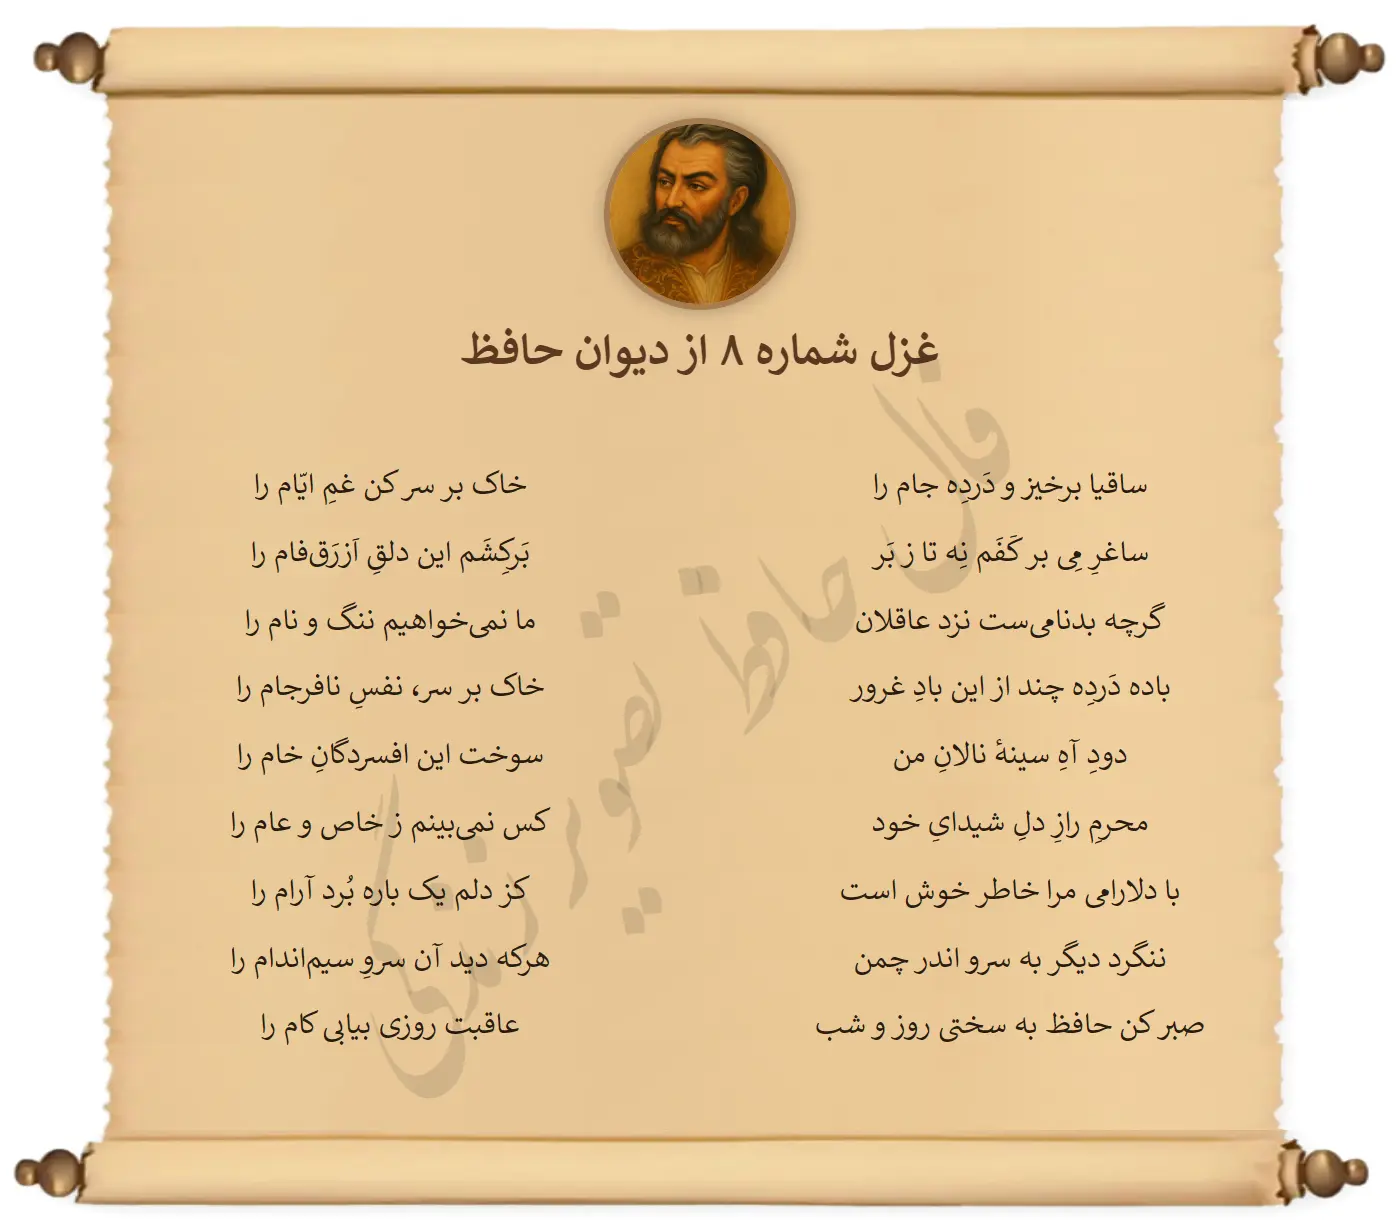 غزل شماره ۸ از دیوان حافظ
ساقیا برخیز و دَردِه جام را
خاک بر سر کن غمِ ایّام را
ساغرِ مِی بر کَفَم نِه تا ز بَر
بَرکِشَم این دلقِ اَزرَق‌فام را
گرچه بدنامی‌ست نزد عاقلان
ما نمی‌خواهیم ننگ و نام را
باده دَردِه چند از این بادِ غرور
خاک بر سر، نفسِ نافرجام را
دودِ آهِ سینهٔ نالانِ من
سوخت این افسردگانِ خام را
محرمِ رازِ دلِ شیدایِ خود
کس نمی‌بینم ز خاص و عام را
با دلارامی مرا خاطر خوش است
کز دلم یک باره بُرد آرام را
ننگرد دیگر به سرو اندر چمن
هرکه دید آن سروِ سیم‌اندام را
صبر کن حافظ به سختی روز و شب
عاقبت روزی بیابی کام را
فال حافظ تصویر زندگی